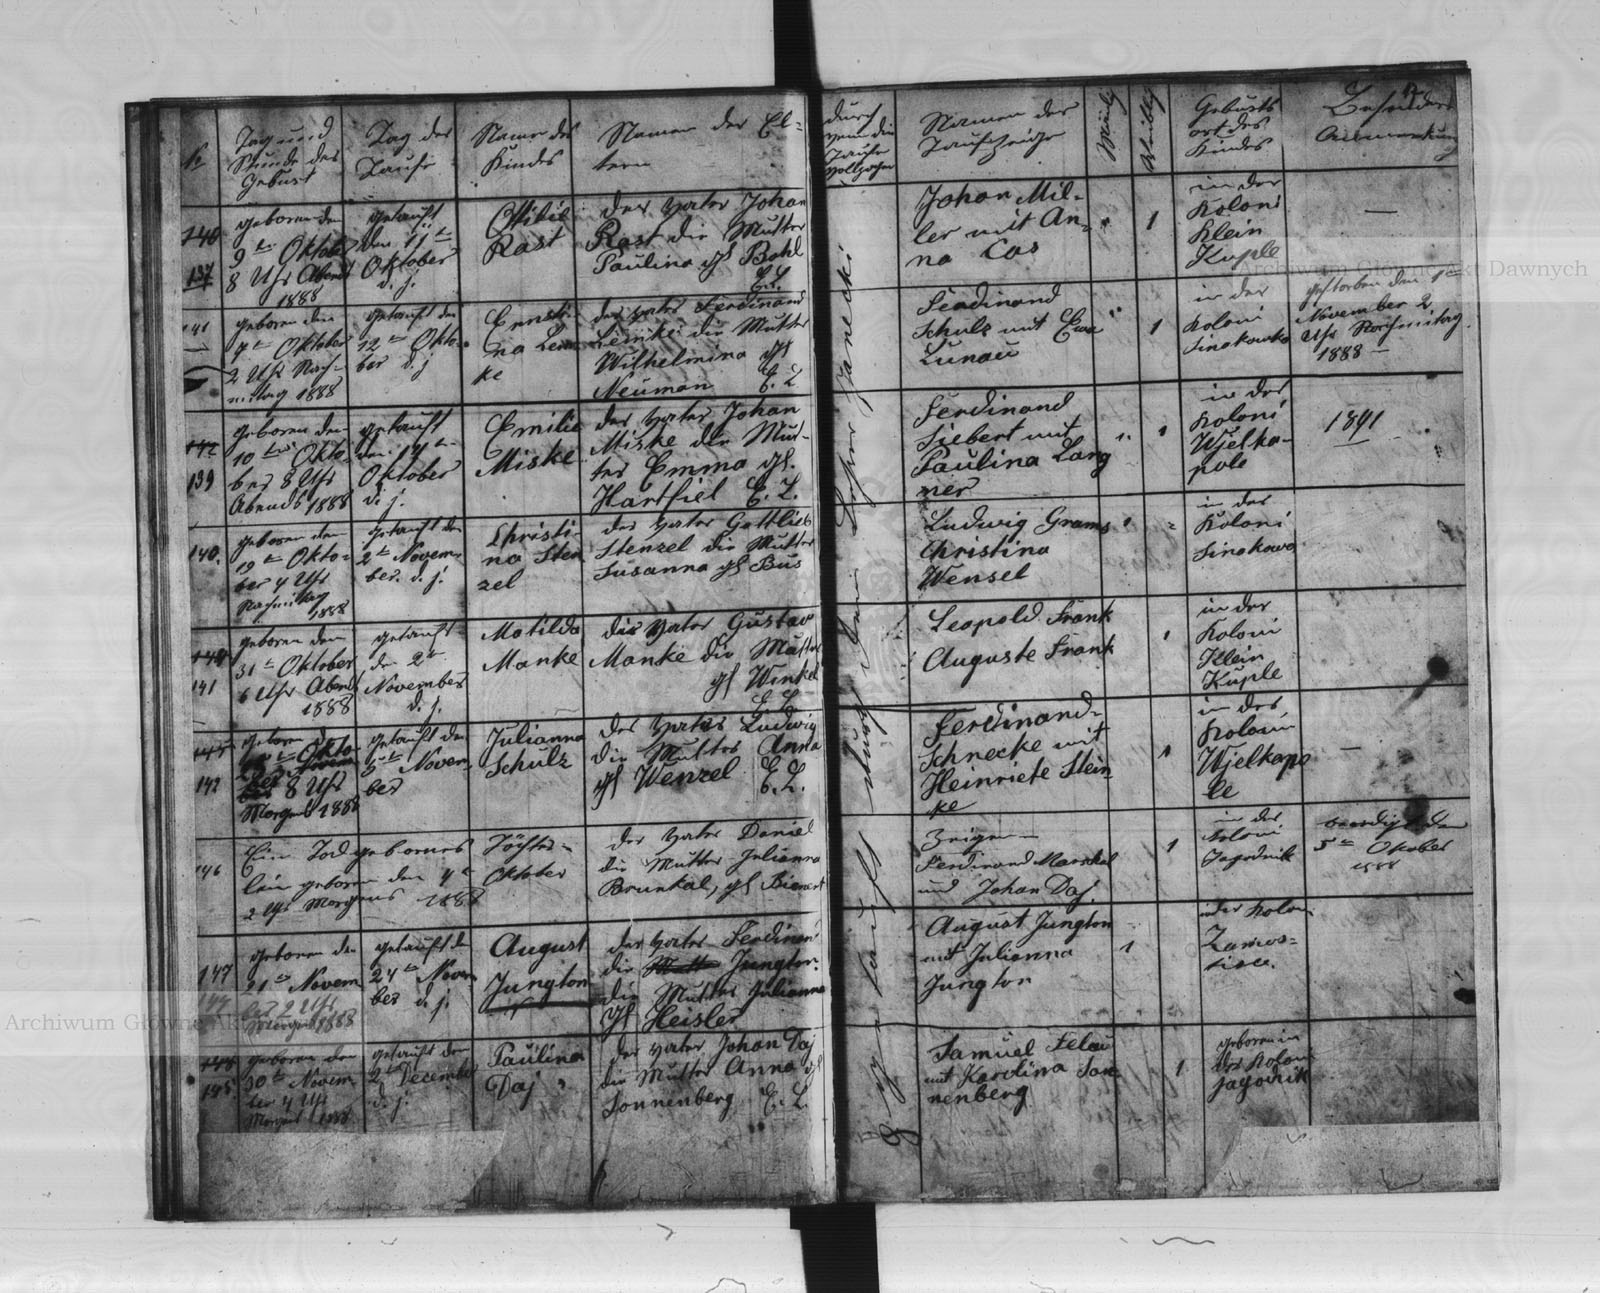 No
Tag und
Stunde des
Geburt
Tag der
Taufe
Name des
Kindes
Namen der El-
tern
140
137
geboren den
9ten Oktober
8 Uhr Abend
1888
getauft
den 11ten
Oktober
d. j.
Ottilie
Rast
der Vater Johan
Rast die Mutter
Paulina gb Bohl
E. L.
141
geboren den
7ten Oktober
2 Uhr Nach-
mitag 1888
getauft den
12ten Okto-
ber d. j
Ernsti-
na Lem
ke
der Vater Ferdinand
Lemke die Mutter
Wilhelmina gb
Neuman E. L
142
139
geboren den
10ten Okto-
ber 8 Uhr
Abends 1888
getauft
den
Oktober
d. j.
Emilie
Miske
der Vater Johan
Miske die Mut-
ter Emma gb.
Hartfiel E. L.
140.
geboren den
19ten Okto-
ber 4 Uhr
Nachmitag
1888
getauft den
2ten Novem-
ber. d. j.
Christi-
na Sten
zel
der Vater Gottlieb
Stenzel die Mutter
Susanna gb Bus
144
141
geboren den
31ten Oktober
6 Uhr Abend
1888
getauft
den 2ten
November
d. j.
Matilda
Manke
der Vater Gustav
Manke die Mutter
gb Winkel
E. L.
145
142
geboren den
Okto-
ber 8 Uhr
Morgens 1888
getauft den
5ten Novem-
ber
Julianna
Schulz
der Vater Ludwig
die Mutter Anna
gb Wenzel E. L.
146
Ein Todgebornes Töchter-
lein geboren den 4ten Oktober
2 Uhr Morgens 1888
der Vater Daniel
die Mutter Julianna
Brunkal, gb Bienert
147
geboren den
21ten Novem
ber 2 Uhr
Morgens 1888
getauft den
24ten Novem
ber d. j.
August
Jungton
der Vater Ferdinand
die Jungton.
die Mutter Julianna
gb Heisler
148
145
geboren den
30ten Novem-
ber 4 Uhr
Morgens 1888
getauft den
2ten December
d. j.
Paulina
Daj
der Vater Johan Daj
die Mutter Anna gb
Sonnenberg E. L.
durch
wem die
Taufe
vollzogen
Namen der
Taufzeige
Mänlig
Weiblig
Geburts
ort des
Kindes
Besondere
Anmerkung
Johan Mil-
ler mit An-
na Cas
1
in der
Koloni
Klein
Kuple
—
Ferdinand
Schulz mit Ewa
Lunau
1
in der
Koloni
Sinakowka
gestorben den 1ten
November 2
Uhr Nachmitag
1888 —
Ferdinand
Siebert mit
Paulina Lang
ner
1
in der
Koloni
Wjelka-
pole
1891
Ludwig Grams
Christina
Wensel
1
in der
Koloni
Sinakowa
Leopold Frank
Auguste Frank
1
in der
Koloni
Klein
Kuple
Ferdinand
Schnecke mit
Heinriete Stein
ke
1
in der
Koloni
Wjelkapo
le
—
Zeigen
Ferdinand Marschel
und Johan Daj
1
in der
Koloni
Jagodnik
beerdigt den
5ten Oktober
1888
August Jungton
mit Julianna
Jungton
1
in der Koloni
Zamos-
tice.
Samuel Felau
mit Karolina Son
nenberg
1
geboren in
der Koloni
Jagodnik
Archiwum Główne Akt Dawnych
Archiwum Główne Akt